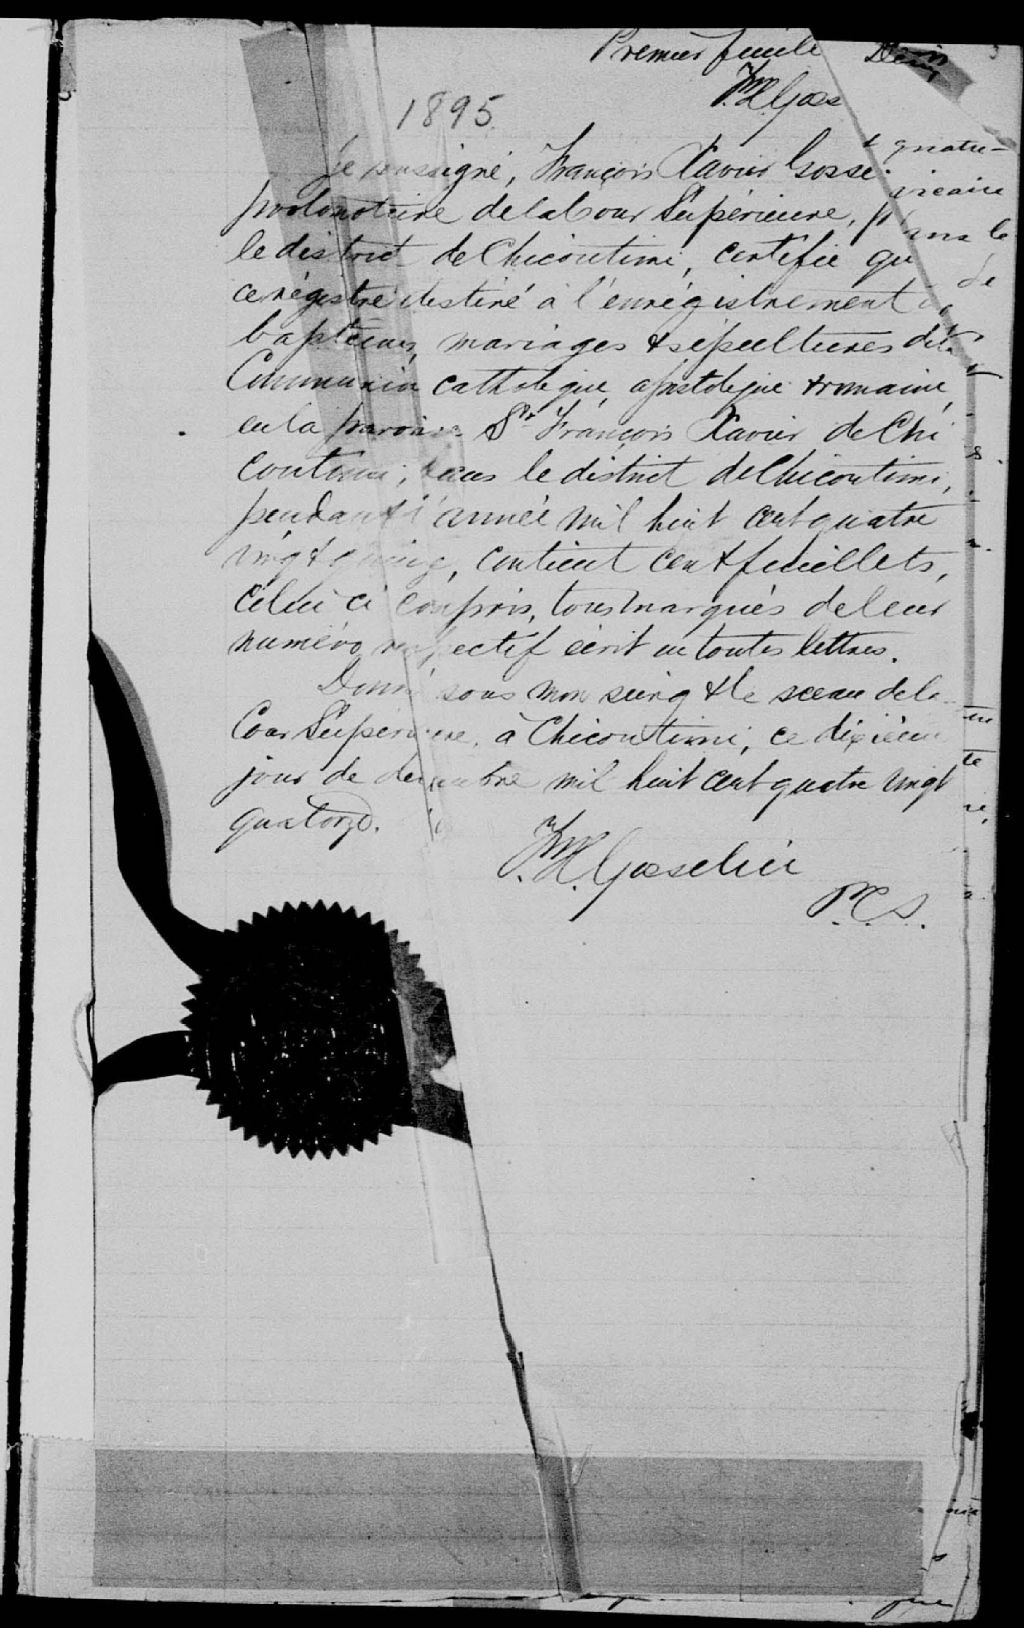 Premier feuille
F.X. Goss
1895
Je soussigné, François Xavier Gosse
protonotaire de la Cour Supérieure, p
le district de Chicoutimi, certifie que
ce régistre destiné à l'enrégistrement de
baptêmes, mariages & sépultures de la
Communion catholique, apostolique & romaine,
en la paroisse St François Xavier de Chi
coutimi, dans le district de Chicoutimi,
pendant l'année mil huit cent quatre
vingt quinze, contient cent feuillets,
celui ci compris, tous marqués de leur
numéro respectif écrit en toutes lettres.
Donné sous mon seing & le sceau de la
Cour Supérieure, à Chicoutimi, ce dixième
jour de decembre mil huit cent quatre vingt
quatorze.
F.X. Gosselin
P.C.S.
quatre-
vicaire
dans le
de